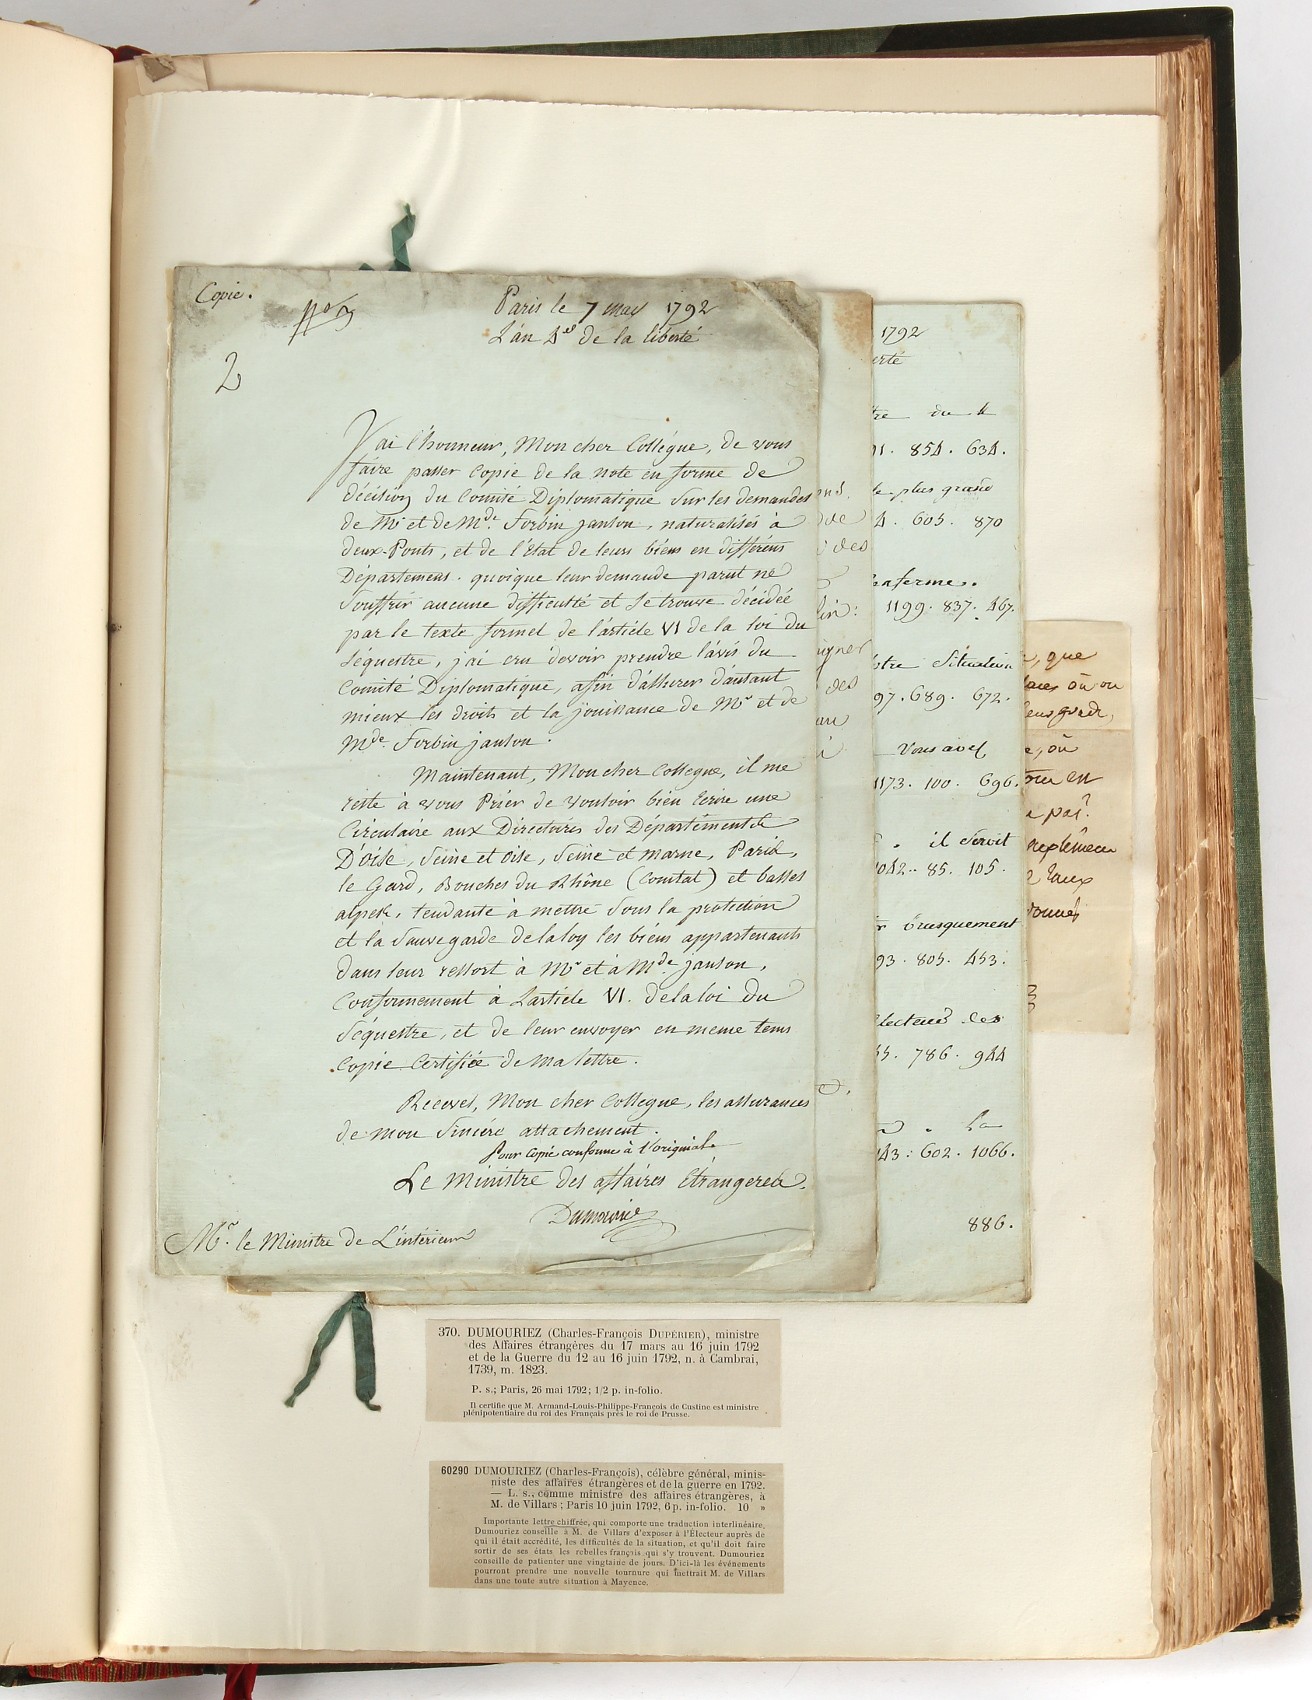 Copie.
Paris le 7 may 1792
L'an 4e de la liberté
2
J'ai l'honneur, Mon cher Collégue, de vous
faire passer copie de la note en forme de
décision du Comité Diplomatique sur les demandes
de Mr et de Mde. Forbin janson, naturalisés à
deux-Ponts, et de l'état de leurs biens en différens
Départemens. quoique leur demande parut ne
souffrir aucune difficulté et se trouve décidée
par le texte formel de l'article VI de la loi du
séquestre, j'ai cru devoir prendre l'avis du
Comité Diplomatique, afin d'assurer d'autant
mieux les droits et la jouissance de Mr et de
Mde. Forbin janson.
Maintenant, Mon cher Collegue, il me
reste à vous Prier de vouloir bien Ecrire une
Circulaire aux Directoires des Départements
D'oise, Seine et Oise, Seine et marne, Paris,
le Gard, Bouches du Rhône (Comtat) et basses
alpes, tendante à mettre sous la protection
et la Sauvegarde de la loy les biens appartenants
dans leur ressort à Mr et à Mde janson,
Conformement à L'article VI. de la loi du
Séquestre, et de leur envoyer en meme tems
Copie Certifiée de Ma lettre.
Recevez, Mon cher Collegue, les assurances
de mon Sincére attachement.
Pour Copie conforme à l'original
Le Ministre des affaires Etrangeres.
Dumouriez
Mr. le Ministre de L'intérieur
1792
erté
tre du 4
91. 854. 634.
le plus grand
4. 605. 870
1199. 837. 467.
otre Situation
97. 689. 672.
Vous avez
1173. 100. 696.
il seroit
1042. 85. 105.
brusquement
93. 805. 453.
lecteur des
786. 944
La
143. 602. 1066.
886.
, que
où
pas?
370. DUMOURIEZ (Charles-François DUPÉRIER), ministre
des Affaires étrangères du 17 mars au 16 juin 1792
et de la Guerre du 12 au 16 juin 1792, n. à Cambrai,
1739, m. 1823.
P. s.; Paris, 26 mai 1792; 1/2 p. in-folio.
Il certifie que M. Armand-Louis-Philippe-François de Custine est ministre
plénipotentiaire du roi des Français près le roi de Prusse.
60290 DUMOURIEZ (Charles-François), célèbre général, minis-
niste des affaires étrangères et de la guerre en 1792.
— L. s., comme ministre des affaires étrangères, à
M. de Villars; Paris 10 juin 1792, 6 p. in-folio. 10 »
Importante lettre chiffrée, qui comporte une traduction interlinéaire.
Dumouriez conseille à M. de Villars d'exposer à l'Électeur auprès de
qui il était accrédité, les difficultés de la situation, et qu'il doit faire
sortir de ses états les rebelles français qui s'y trouvent. Dumouriez
conseille de patienter une vingtaine de jours. D'ici-là les événements
pourront prendre une nouvelle tournure qui mettrait M. de Villars
dans une toute autre situation à Mayence.